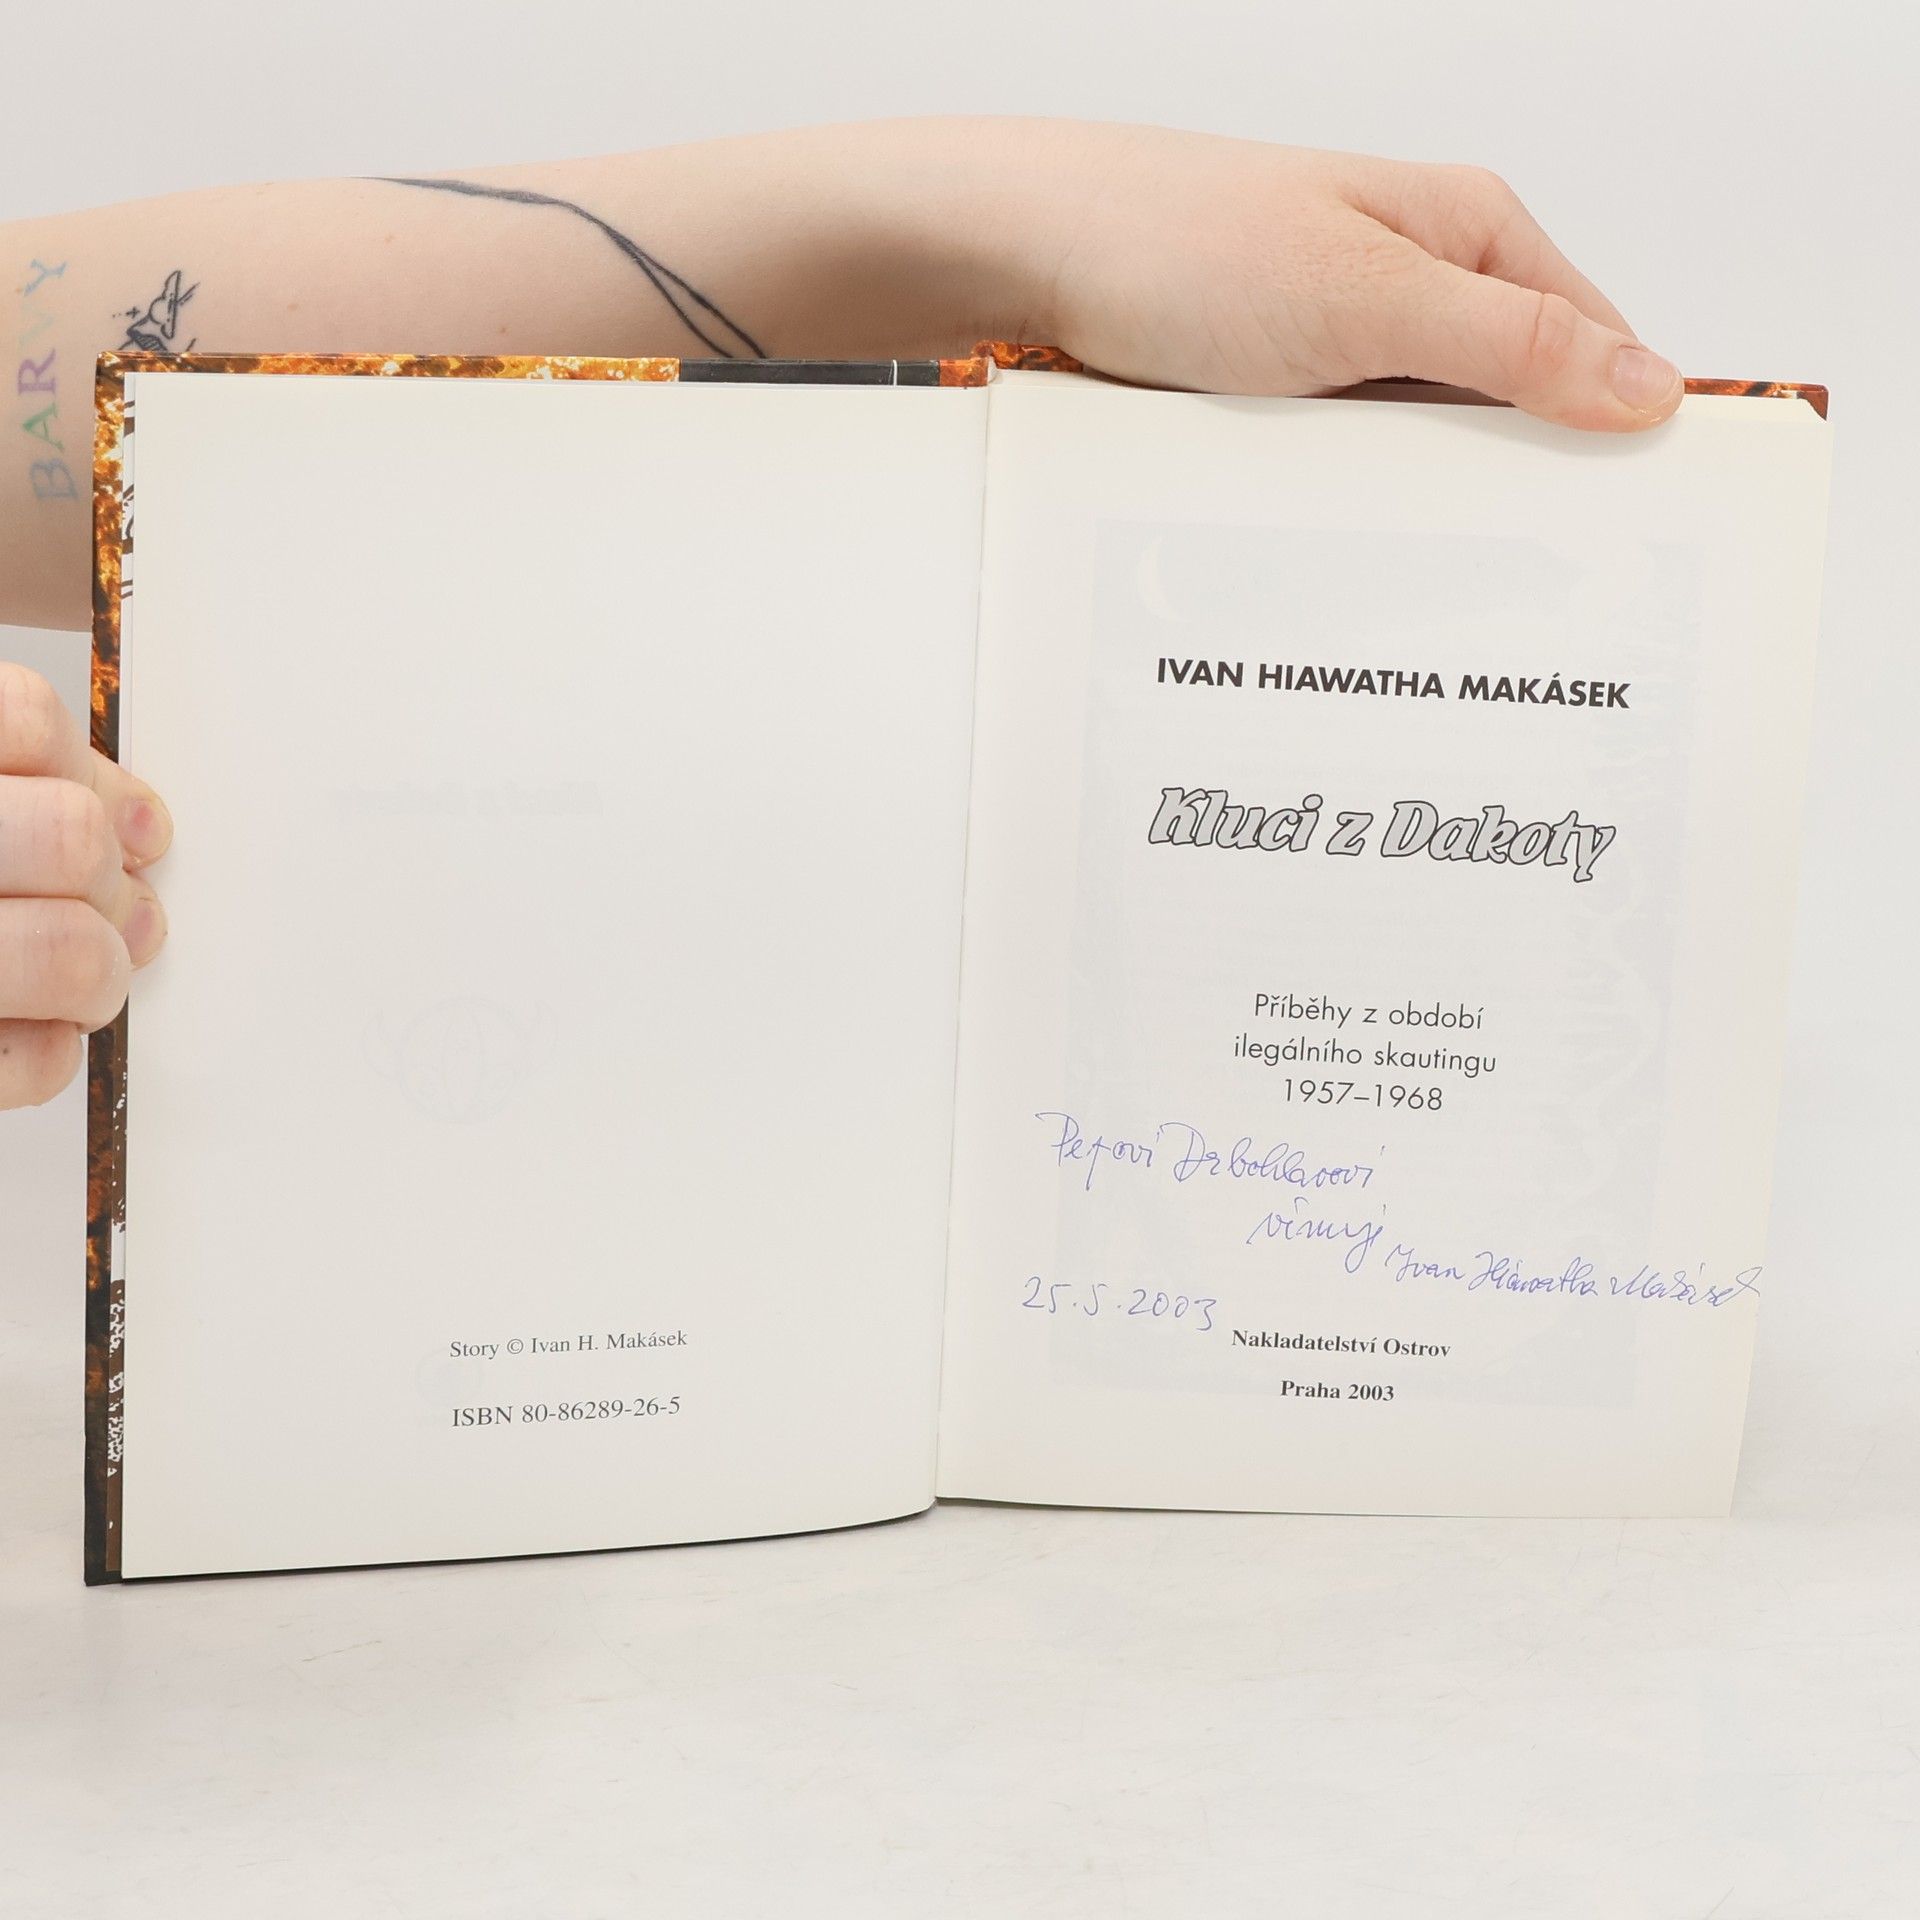 BARVY
Story © Ivan H. Makásek
ISBN 80-86289-26-5
IVAN HIAWATHA MAKÁSEK
Kluci z Dakoty
Příběhy z období
ilegálního skautingu
1957–1968
Petrovi Drbohlavovi
věnuje
Ivan Hiawatha Makásek
25.5.2003
Nakladatelství Ostrov
Praha 2003